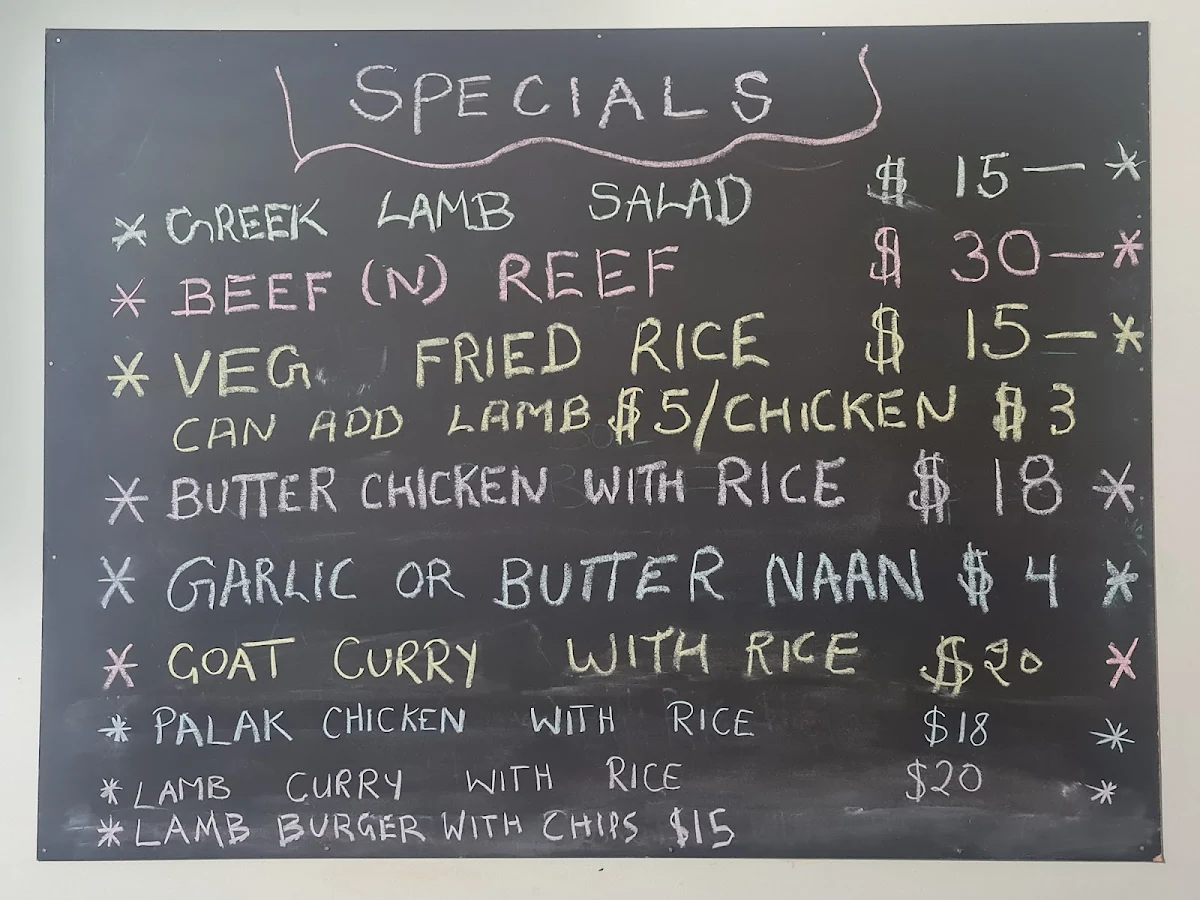 SPECIALS
* GREEK LAMB SALAD $ 15— *
* BEEF (N) REEF $ 30— *
* VEG FRIED RICE $ 15— *
CAN ADD LAMB $5/CHICKEN $3
* BUTTER CHICKEN WITH RICE $ 18 *
* GARLIC OR BUTTER NAAN $ 4 *
* GOAT CURRY WITH RICE $20 *
* PALAK CHICKEN WITH RICE $18 *
* LAMB CURRY WITH RICE $20 *
* LAMB BURGER WITH CHIPS $15